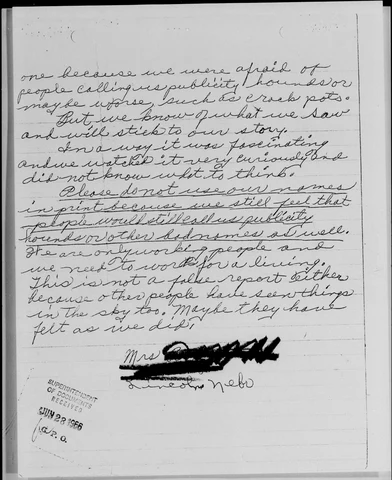 one because we were afraid of
people calling us publicity hounds or
maybe worse, such as crack pots.
But we know of what we saw
and will stick to our story.
In a way it was fascinating
and we watched it very curiously and
did not know what to think.
Please do not use our names
in print because we still feel that
people would still call us publicity
hounds or other bad names as well.
We are only working people and
we need to work for a living.
This is not a false report either
because other people have seen things
in the sky too. Maybe they have
felt as we did.
Mrs
Lincoln Nebr
SUPERINTENDENT
OF DOCUMENTS
RECEIVED
JUN 28 1966
G.P.O.